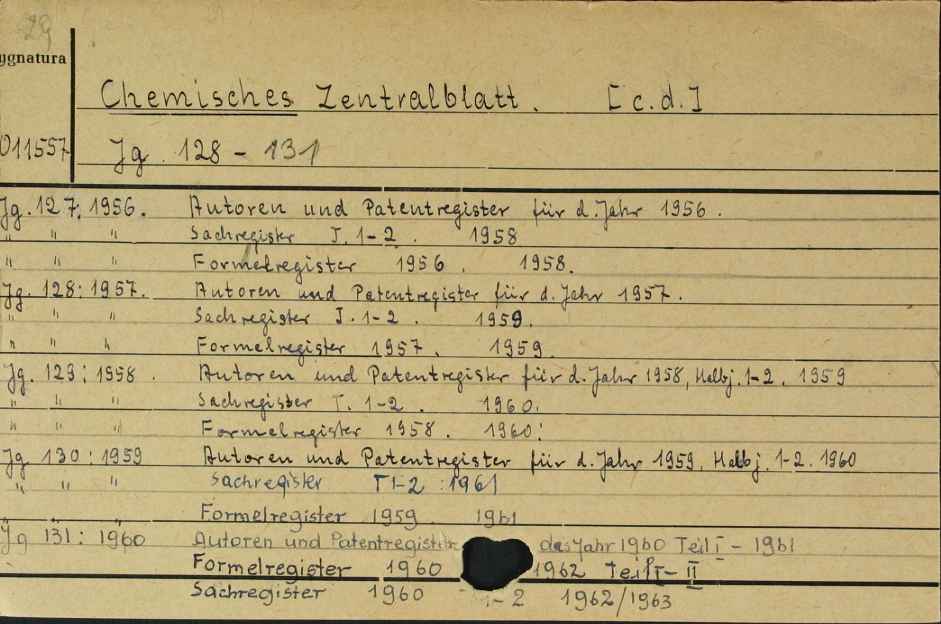 29
ygnatura
Chemisches Zentralblatt. [c.d.]
011557 Jg. 128 - 131
Jg. 127: 1956. Autoren und Patentregister für d. Jahr 1956.
" " " Sachregister T. 1-2. 1958
" " " Formelregister 1956. 1958.
Jg. 128: 1957. Autoren und Patentregister für d. Jahr 1957.
" " " Sachregister T. 1-2. 1959.
" " " Formelregister 1957. 1959.
Jg. 129: 1958. Autoren und Patentregister für d. Jahr 1958, Halbj. 1-2. 1959
" " " Sachregister T. 1-2. 1960.
" " " Formelregister 1958. 1960.
Jg 130: 1959 Autoren und Patentregister für d. Jahr 1959, Halbj. 1-2. 1960
" " " Sachregister T 1-2 : 1961
" " " Formelregister 1959 1961
Jg 131: 1960 Autoren und Patentregister das Jahr 1960 Teil I - 1961
Formelregister 1960 1962 Teil I - II
Sachregister 1960 1-2 1962/1963